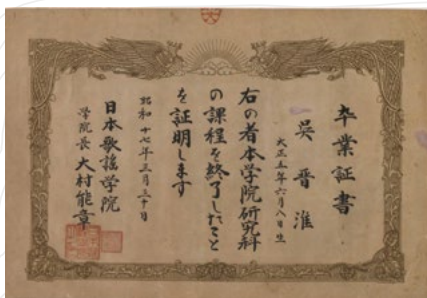 卒業証書
吳晋淮
大正五年六月八日生
右の者本学院研究科
の課程を終了したこと
を証明します
昭和十七年三月三十日
日本歌謡学院
学院長 大村能章